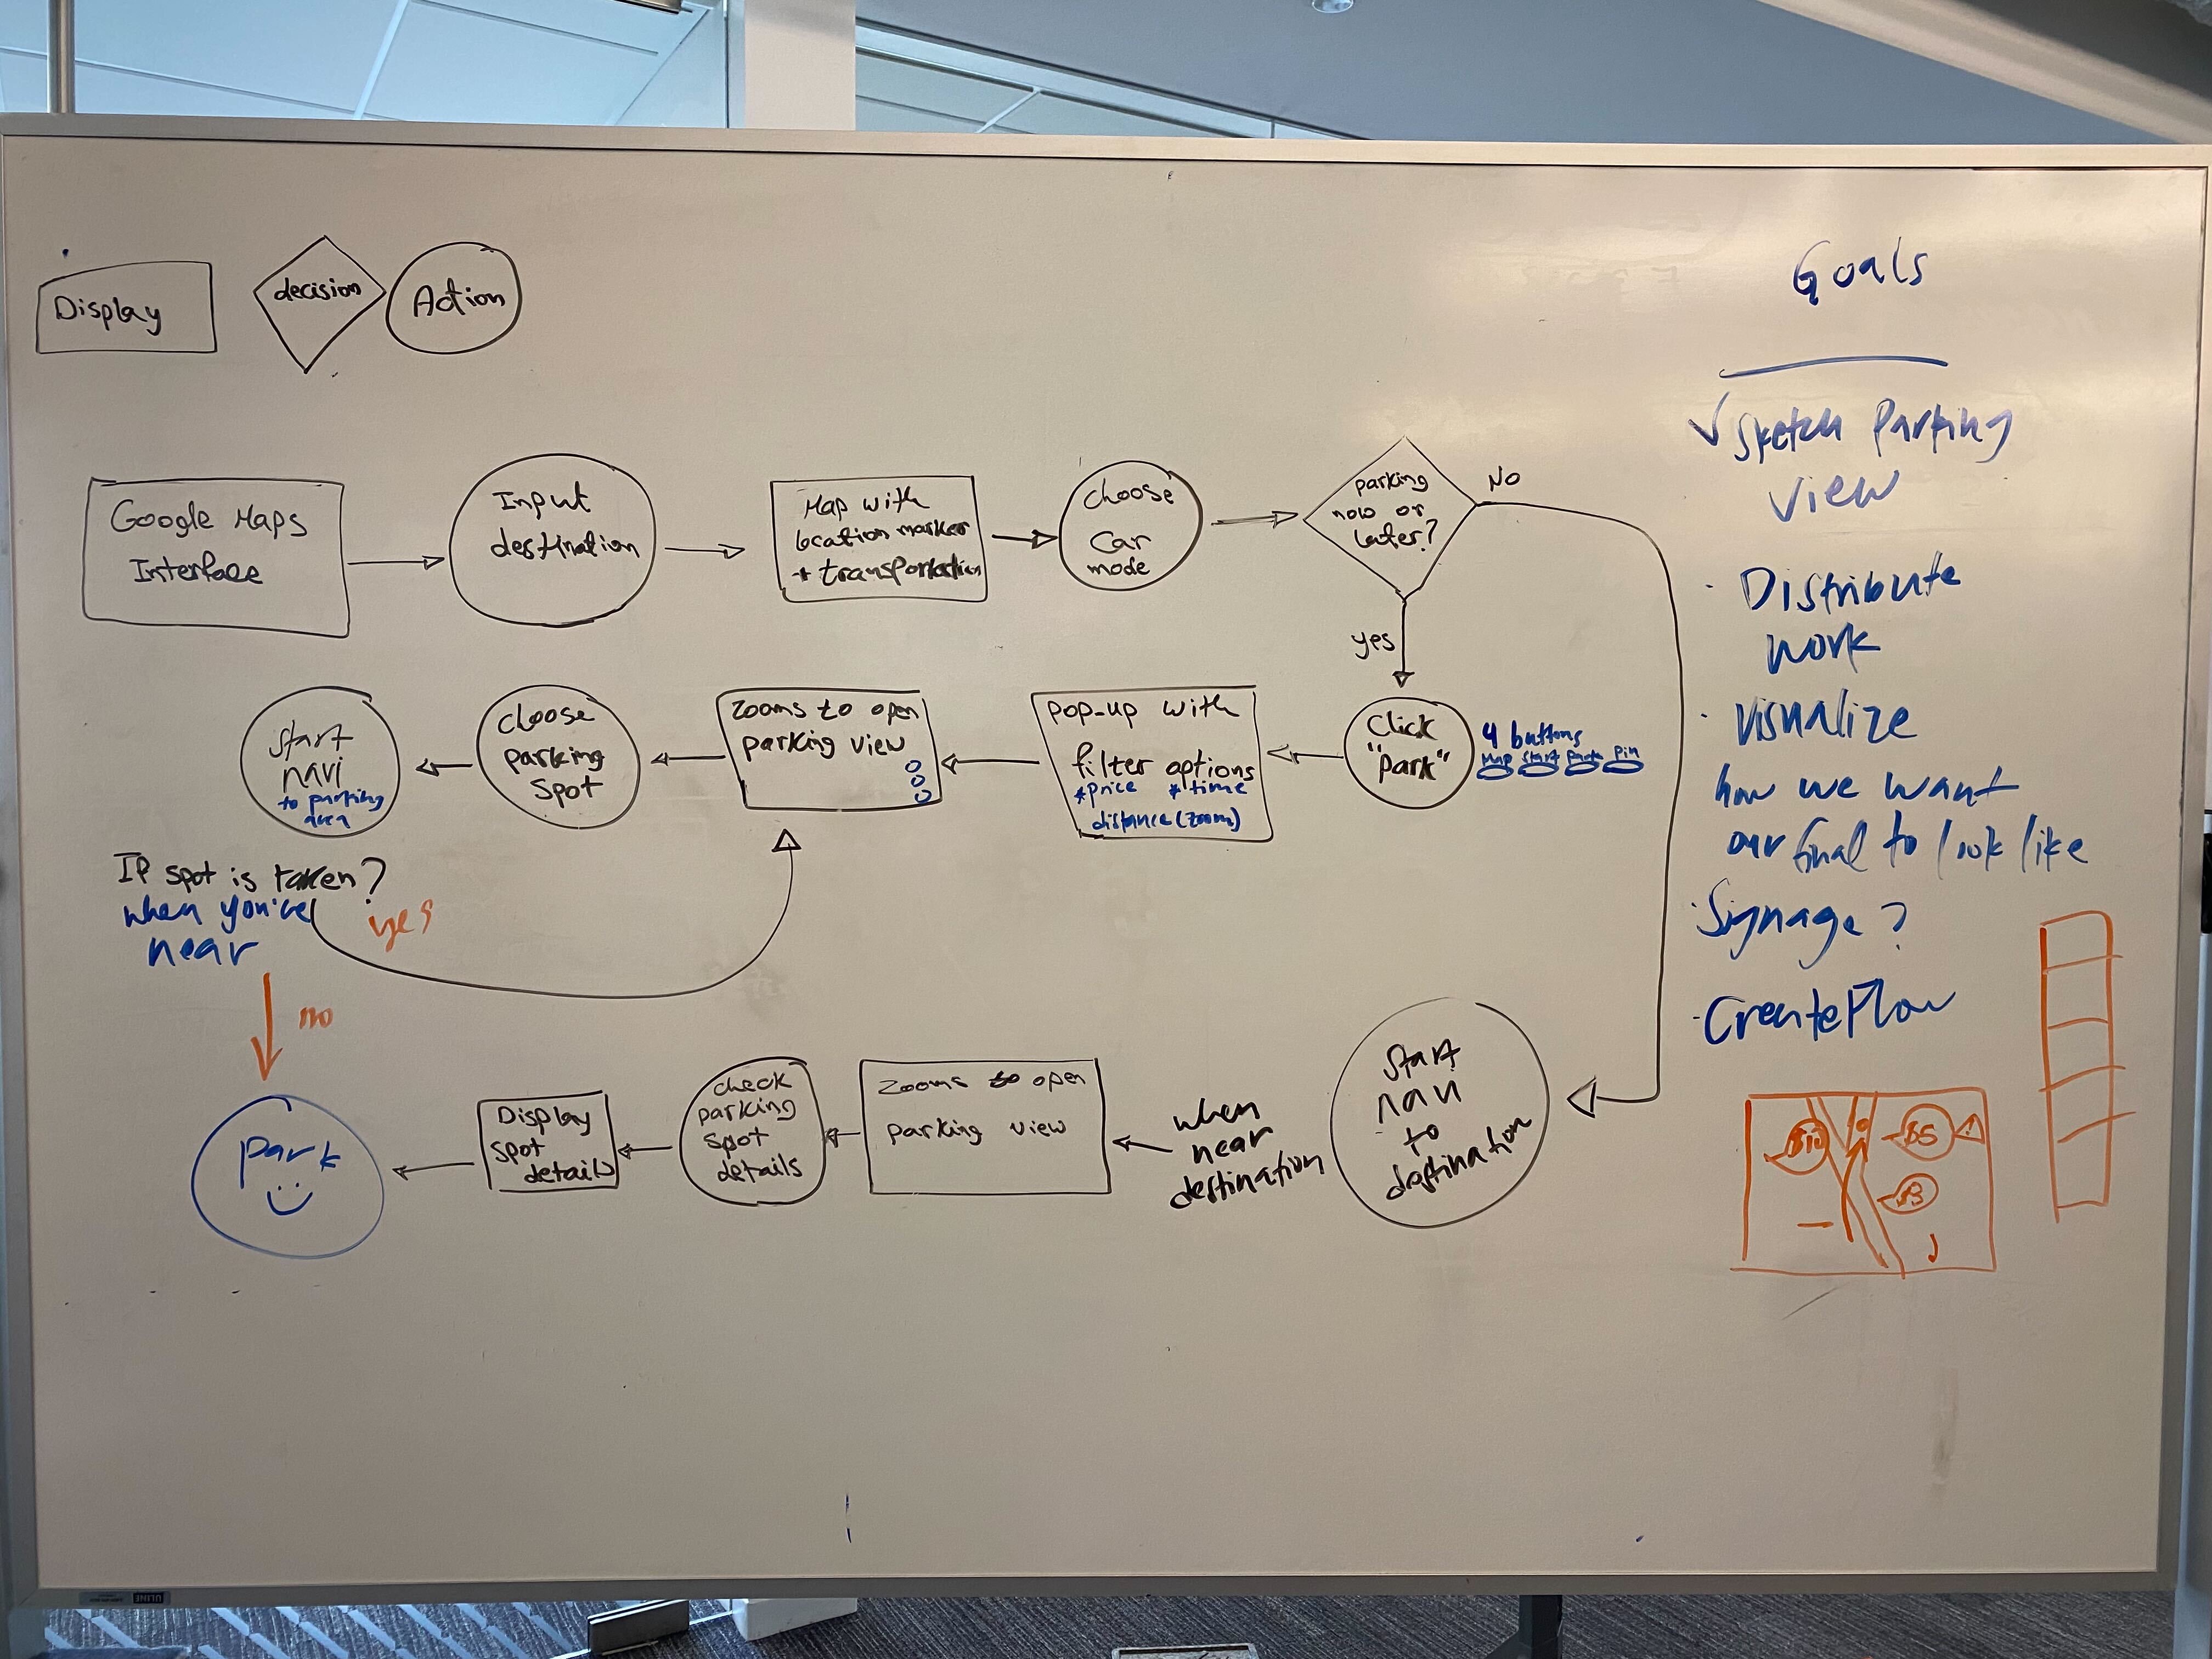 Display
decision
Action
Google Maps
Interface
Input
destination
Map with
location marker
+ transportation
choose
Car
mode
parking
now or
later?
No
yes
Click
"Park"
4 buttons
Map Start Park Pin
pop-up with
filter options
*price *time
distance (zoom)
zooms to open
parking view
choose
parking
spot
start
navi
to parking
area
If spot is taken?
when you're
near
yes
no
park
Display
spot
details
check
parking
spot
details
zooms to open
parking view
when
near
destination
Start
navi
to
destination
Goals
✓ Sketch Parking
View
· Distribute
work
· Visualize
how we want
our final to look like
· Signage?
· Create Flow
$10
$5
$3
ULINE